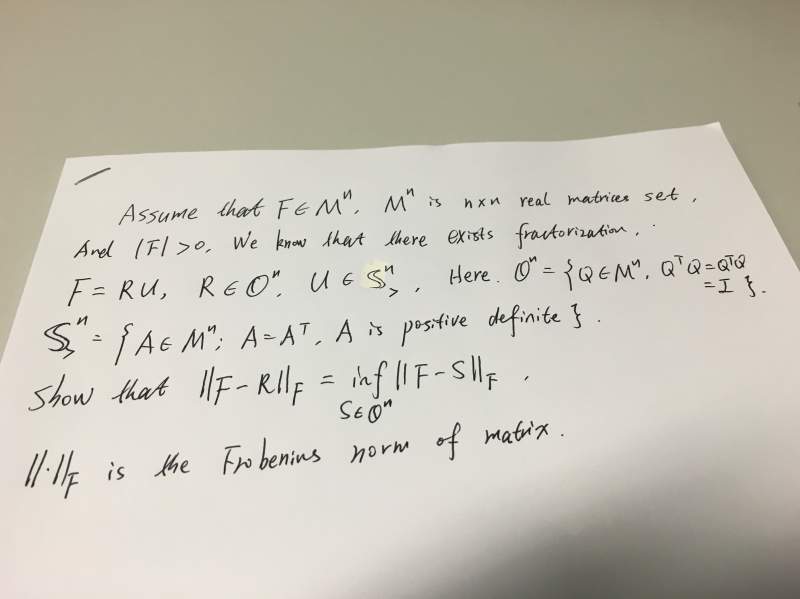 Assume that F ∈ Mⁿ. Mⁿ is n×n real matrices set.
And |F| > 0. We know that there exists fractorization,
F = RU, R ∈ 𝕆ⁿ. U ∈ 𝕊ⁿ_>, Here. 𝕆ⁿ = {Q ∈ Mⁿ. QᵀQ = QᵀQ = I}.
𝕊ⁿ_> = {A ∈ Mⁿ; A = Aᵀ, A is positive definite}.
Show that ||F - R||_F = inf_{S ∈ 𝕆ⁿ} ||F - S||_F,
||·||_F is the Frobenius norm of matrix.